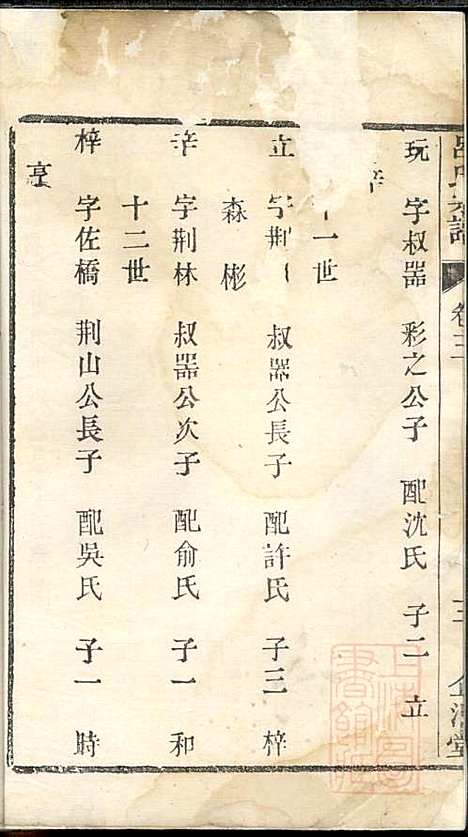 玩 字叔器 彩之公子 配沈氏 子二 立
辛
十一世
立 字荆山 叔器公長子 配許氏 子三 梓
森 彬
辛 字荆林 叔器公次子 配俞氏 子一 和
十二世
梓 字佐橋 荆山公長子 配吳氏 子一 時
亨
呂氏宗譜 卷三 三